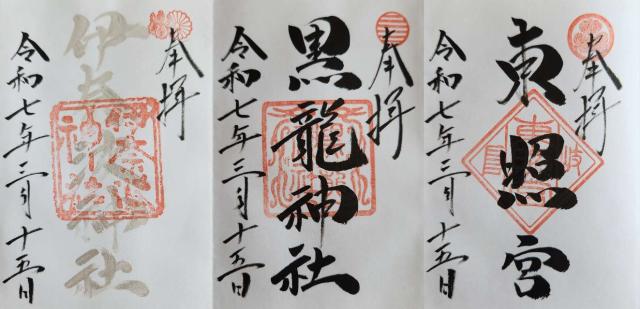 奉拝
伊奈波神社
令和七年三月十五日
奉拝
黒龍神社
令和七年三月十五日
奉拝
東照宮
令和七年三月十五日